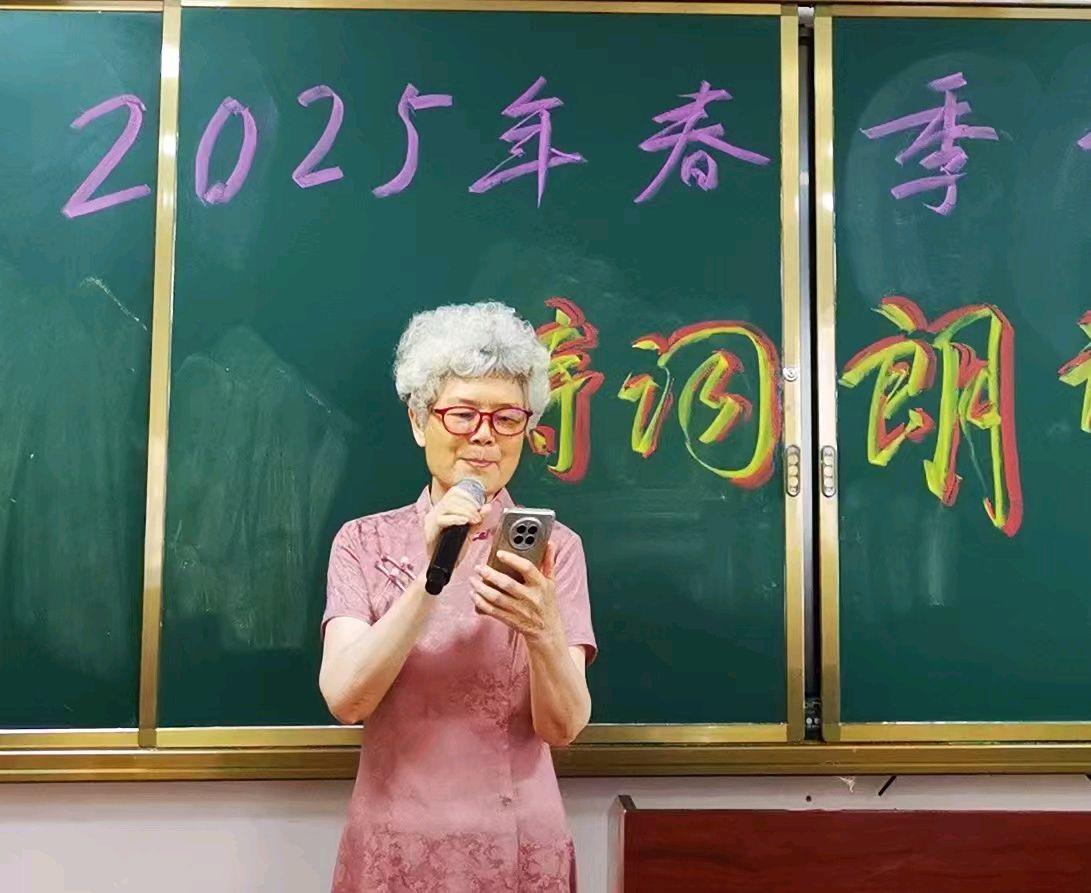 2025年春季
诗词朗